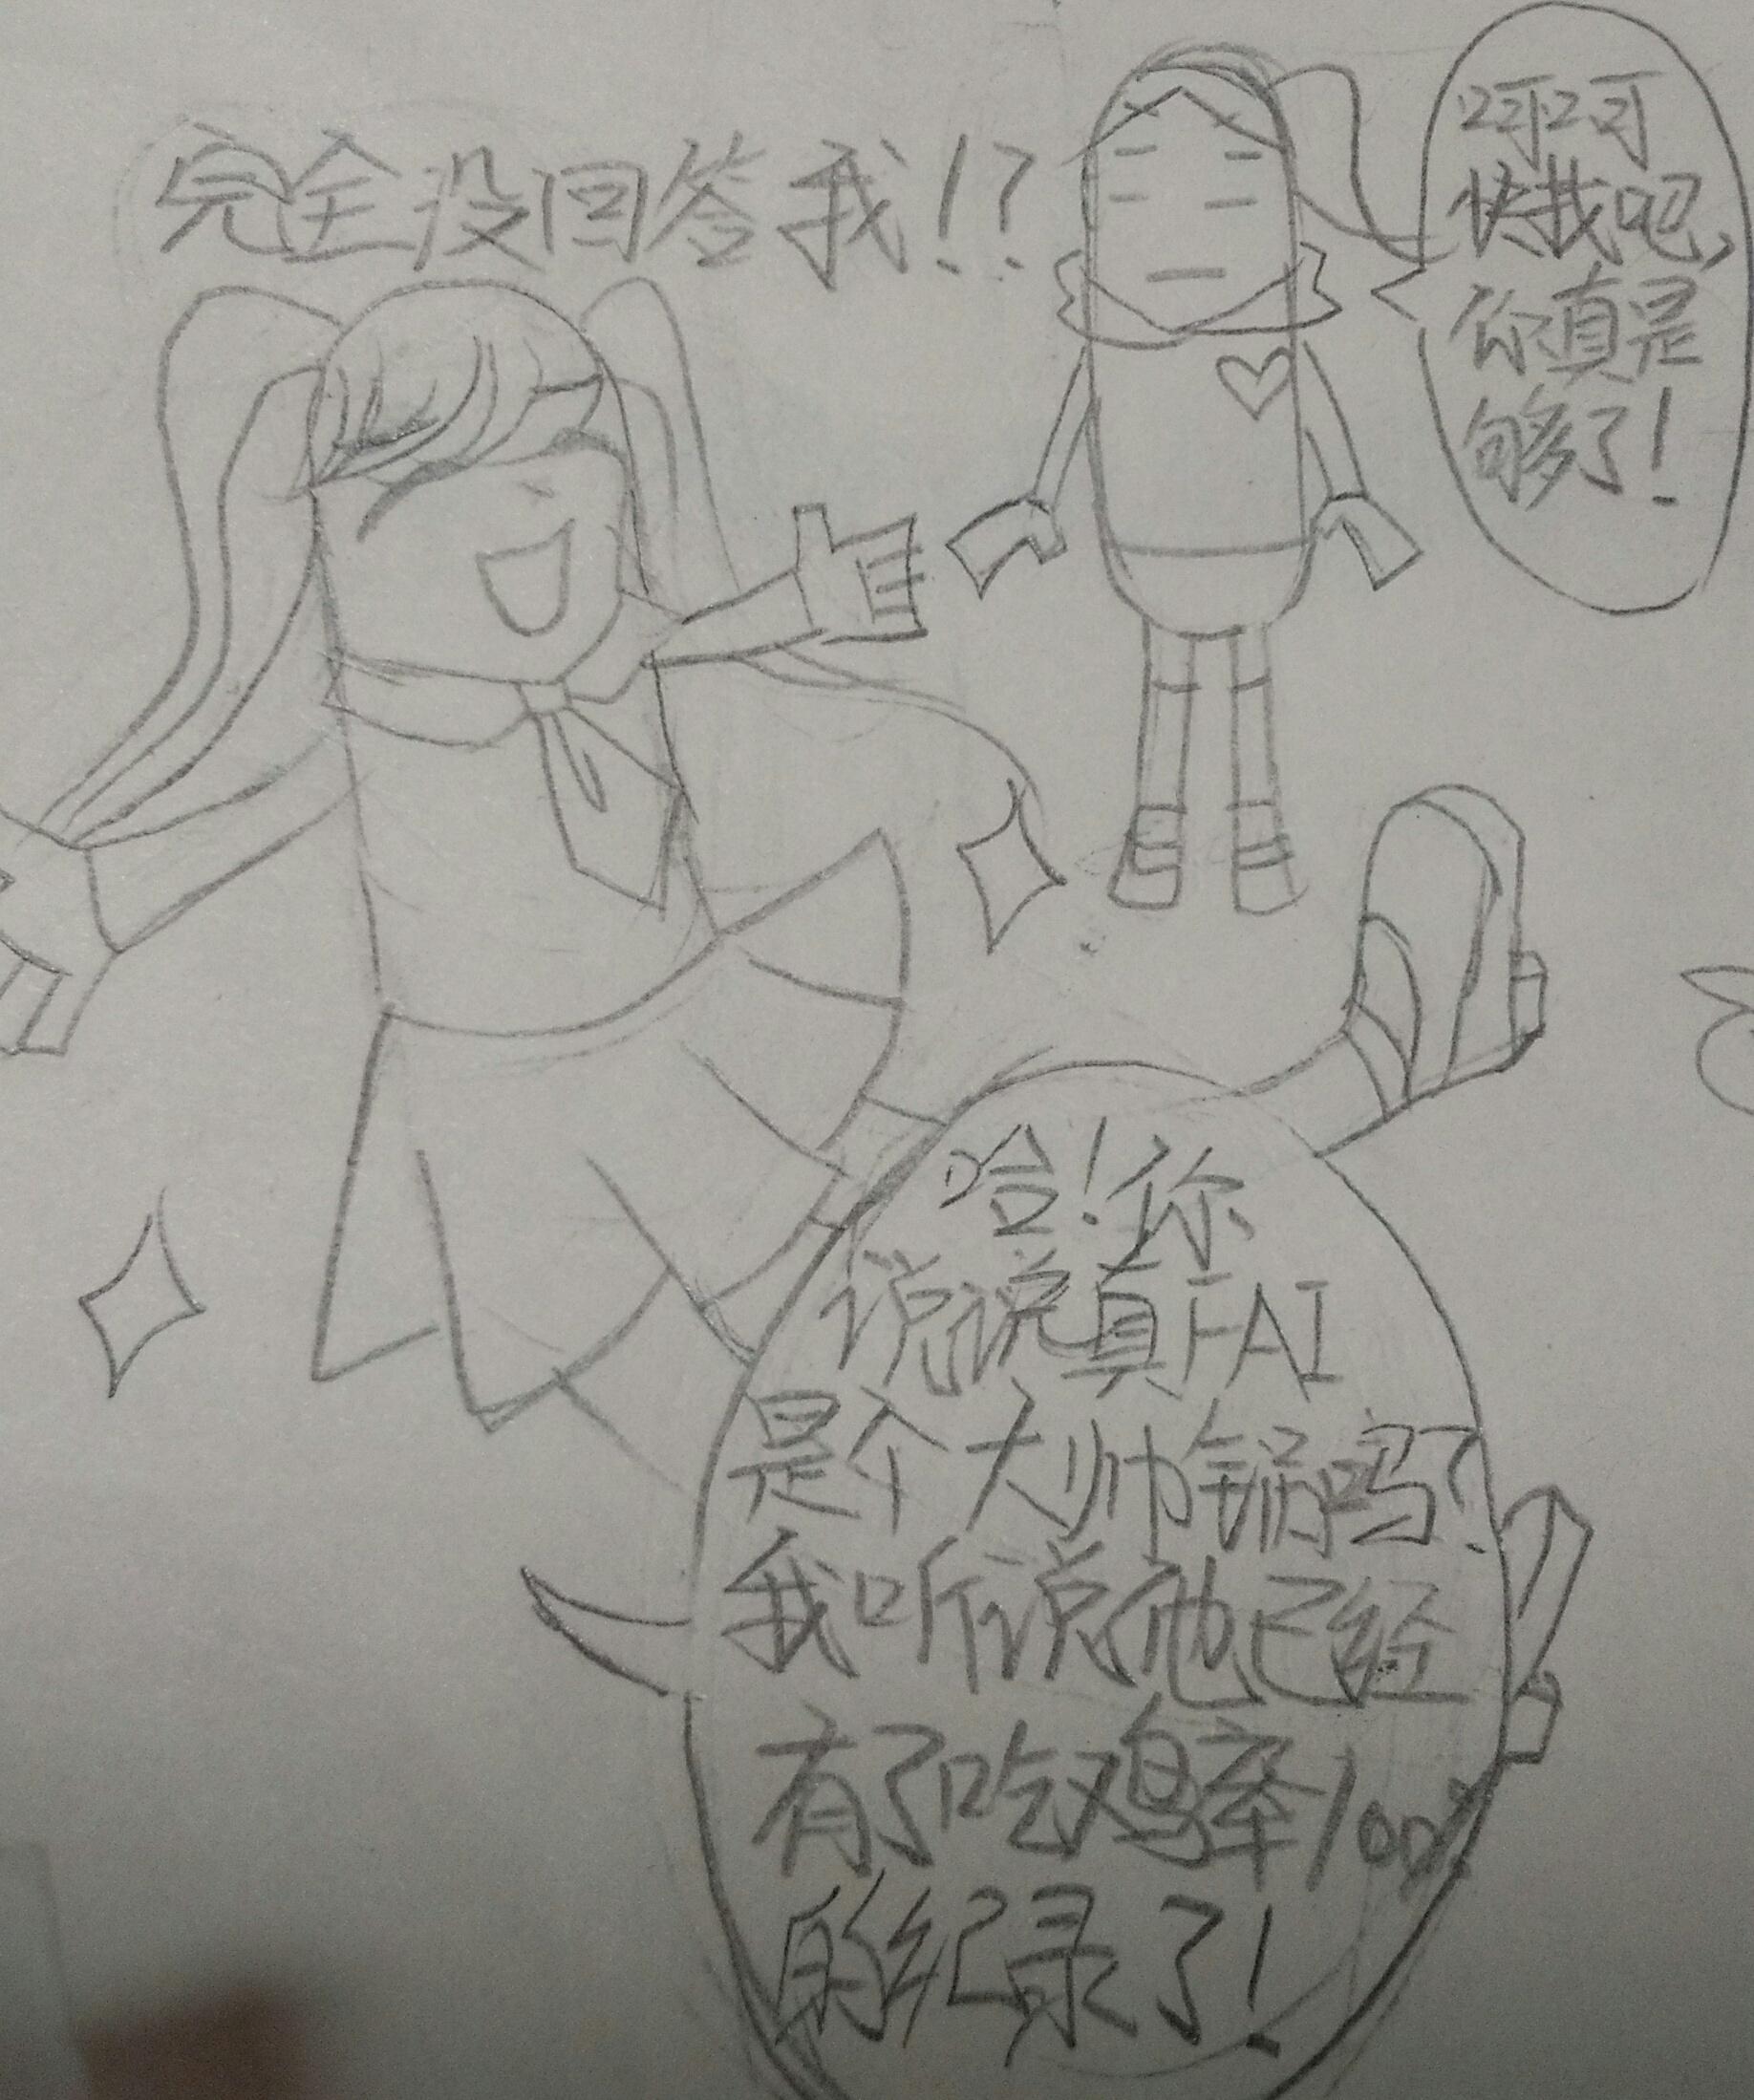 完全没回答我!?
呵呵
快找吧,
你真是
够了!
哈!你
说说真FAI
是个大帅锅吗?
我听说他已经
有了吃鸡率100%
的纪录了!